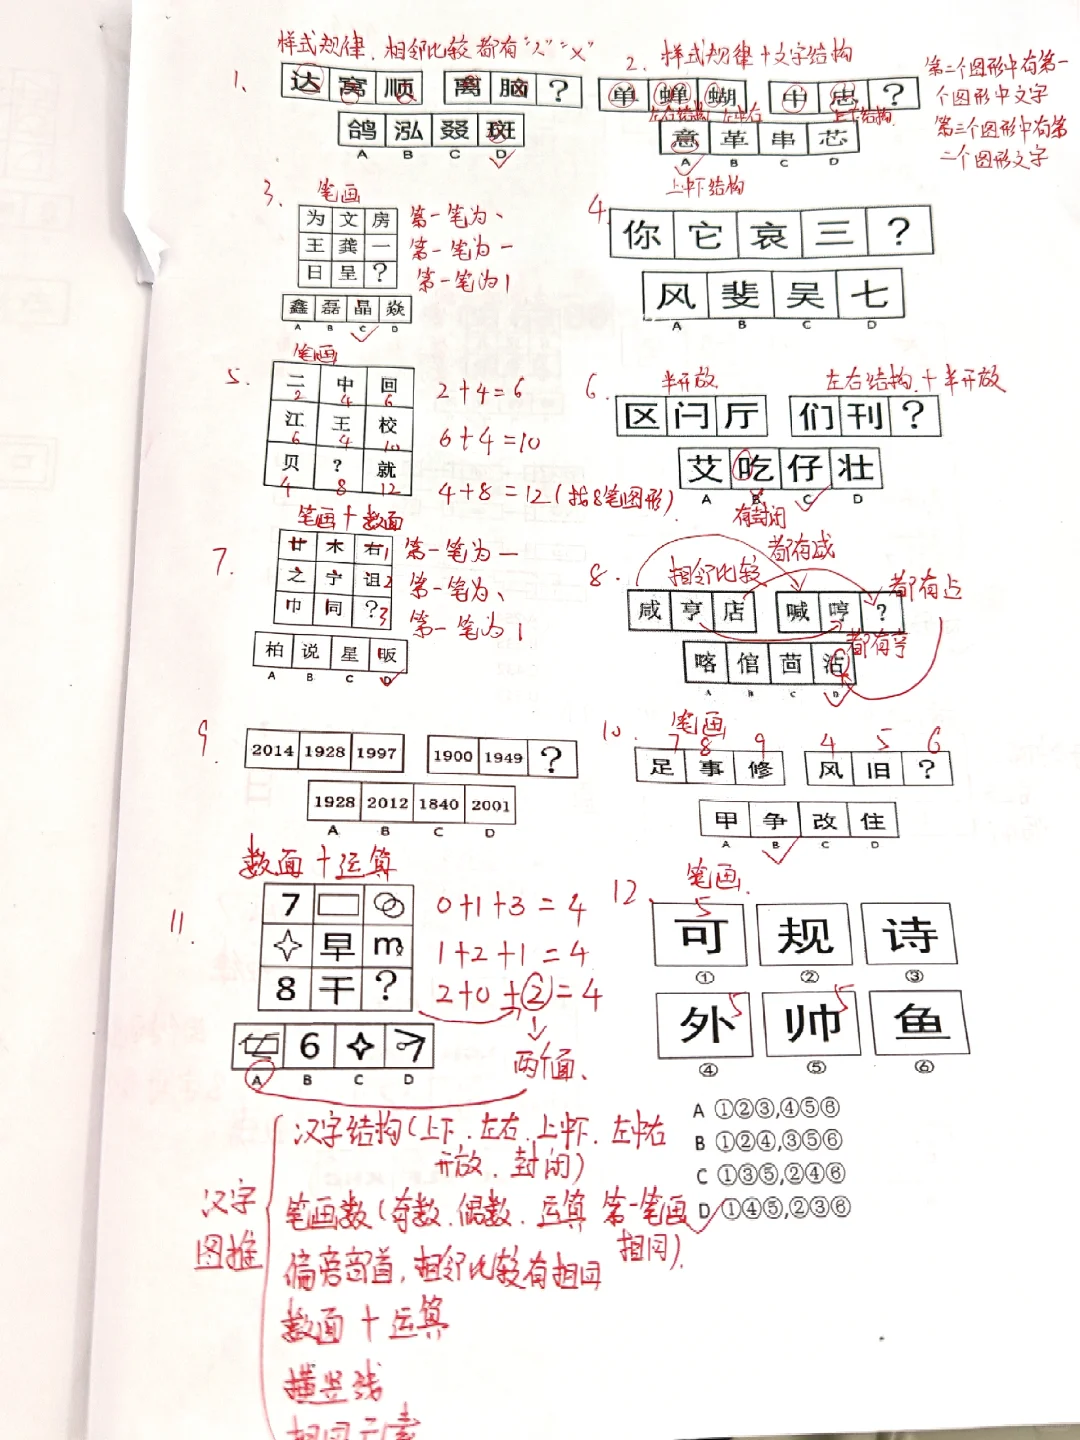 样式规律.相邻比较都有"人""×"
1、
达 窝 顺 离 脑 ?
鸽 泓 叕 斑
A B C D
2. 样式规律+文字结构
单 蝉 蝴 中 忠 ?
左右结构 左中右 上下结构.
意 革 串 芯
A B C D
上中下结构
第二个图形中有第一
个图形中文字
第三个图形中有第
二个图形文字
3. 笔画
为 文 房 第一笔为、
王 龚 一 第一笔为一
日 呈 ? 第一笔为丨
鑫 磊 晶 焱
A B C D
4.
你 它 哀 三 ?
风 斐 吴 七
A B C D
5. 笔画
二 中 回
2 4 6
2+4=6
江 王 校
6 4 10
6+4=10
贝 ? 就
4 8 12
4+8=12(找8笔图形)
6. 半开放 左右结构.+半开放
区 闩 厅 们 刊 ?
艾 吃 仔 壮
A B C D
有封闭
7. 笔画+数面
廿 木 右1 第一笔为一
之 宁 诅2 第一笔为、
巾 同 ?3 第一笔为丨
柏 说 星 昄
A B C D
8. 相邻比较 都有咸
咸 亨 店 喊 哼 ?
都有占
都有亨
喀 倌 茴 沾
A B C D
9
2014 1928 1997 1900 1949 ?
1928 2012 1840 2001
A B C D
10. 笔画
7 8 9 4 5 6
足 事 修 风 旧 ?
甲 争 改 住
A B C D
数面+运算
11
7 0+1+3=4
早 1+2+1=4
8 干 ? 2+0+2=4
6
A B C D
两个面、
12. 笔画.
5
可 规 诗
① ② ③
外 5 帅 5 鱼
④ ⑤ ⑥
A ①②③,④⑤⑥
B ①②④,③⑤⑥
C ①③⑤,②④⑥
D ①④⑤,②③⑥
汉字
图推
汉字结构(上下.左右.上中下.左中右
开放.封闭)
笔画数(奇数.偶数.运算 第一笔画
相同).
偏旁部首,相邻比较有相同
数面+运算
横竖线
相同元素